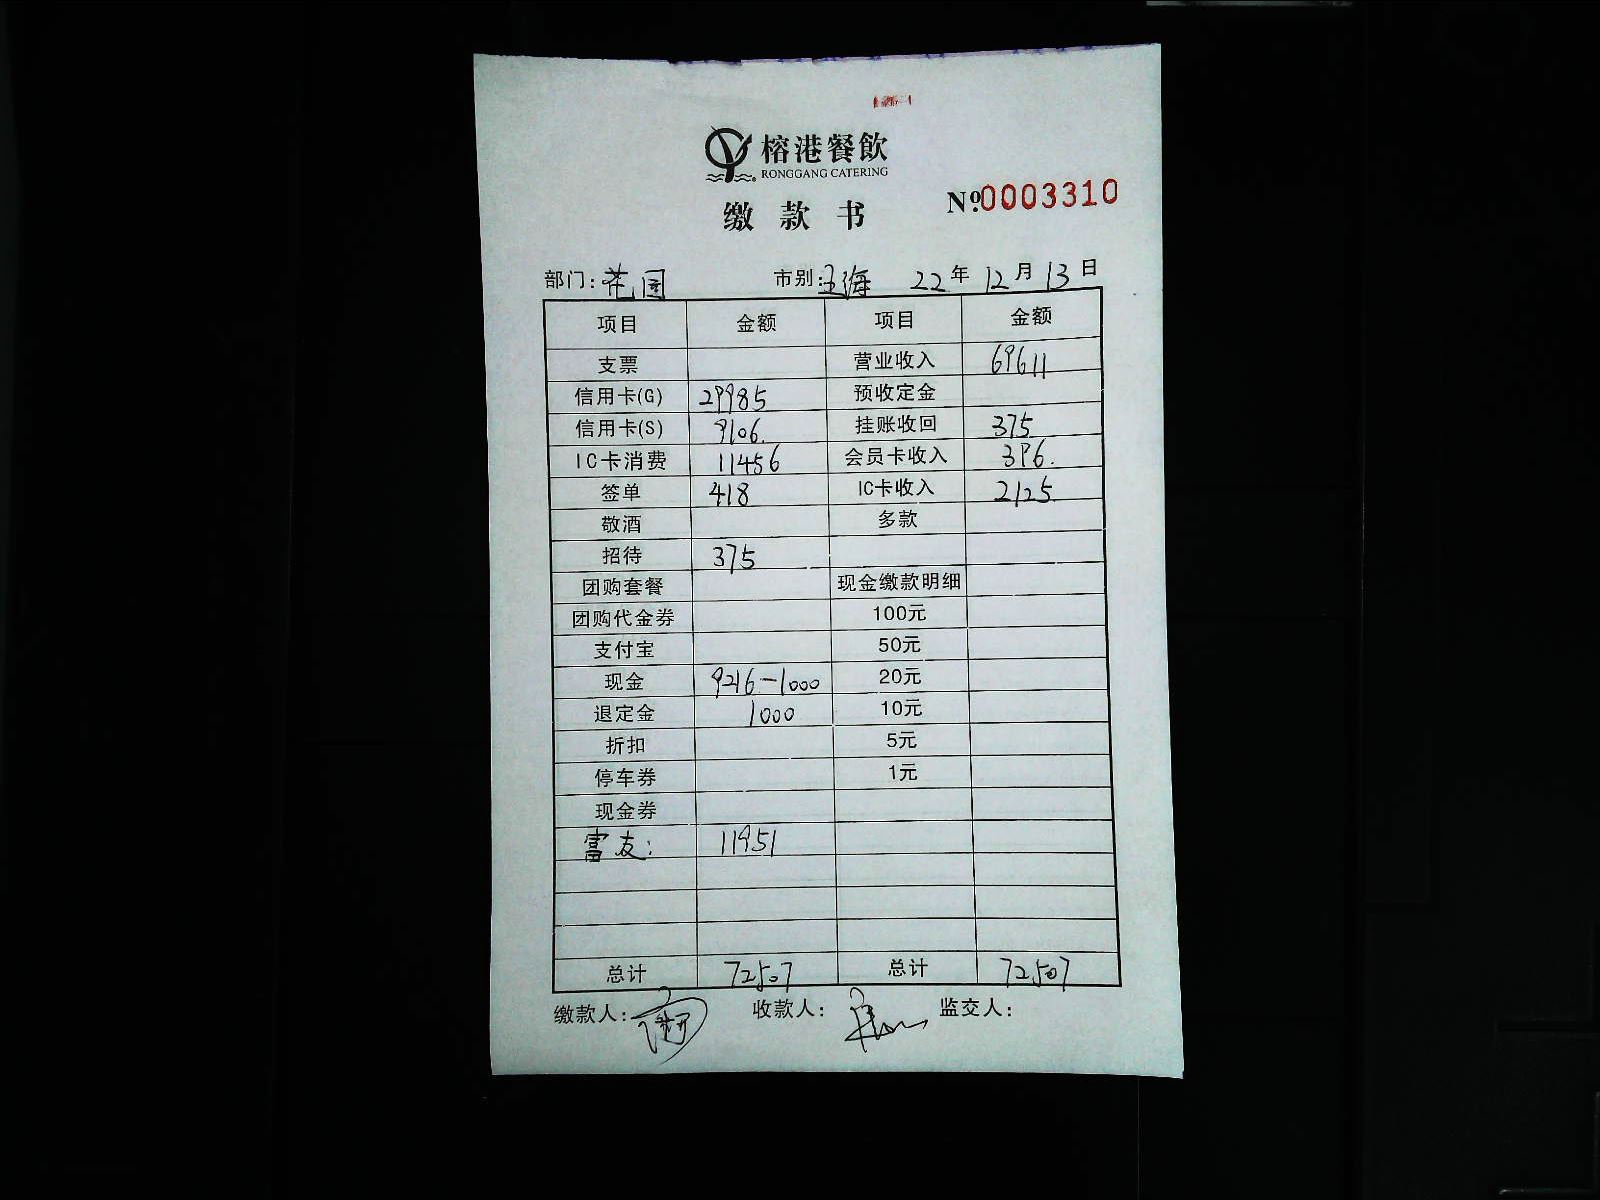 榕港餐飲
RONGGANG CATERING
缴款书
№0003310
部门: 花园 市别: 22年12月13日
项目 金额 项目 金额
支票 营业收入 69611
信用卡(G) 29985 预收定金
信用卡(S) 9106. 挂账收回 375
IC卡消费 11456 会员卡收入 396.
签单 418 IC卡收入 2125
敬酒 多款
招待 375
团购套餐 现金缴款明细
团购代金券 100元
支付宝 50元
现金 9216-1000 20元
退定金 1000 10元
折扣 5元
停车券 1元
现金券
富友: 11951
总计 72507 总计 72507
缴款人: 收款人: 监交人: